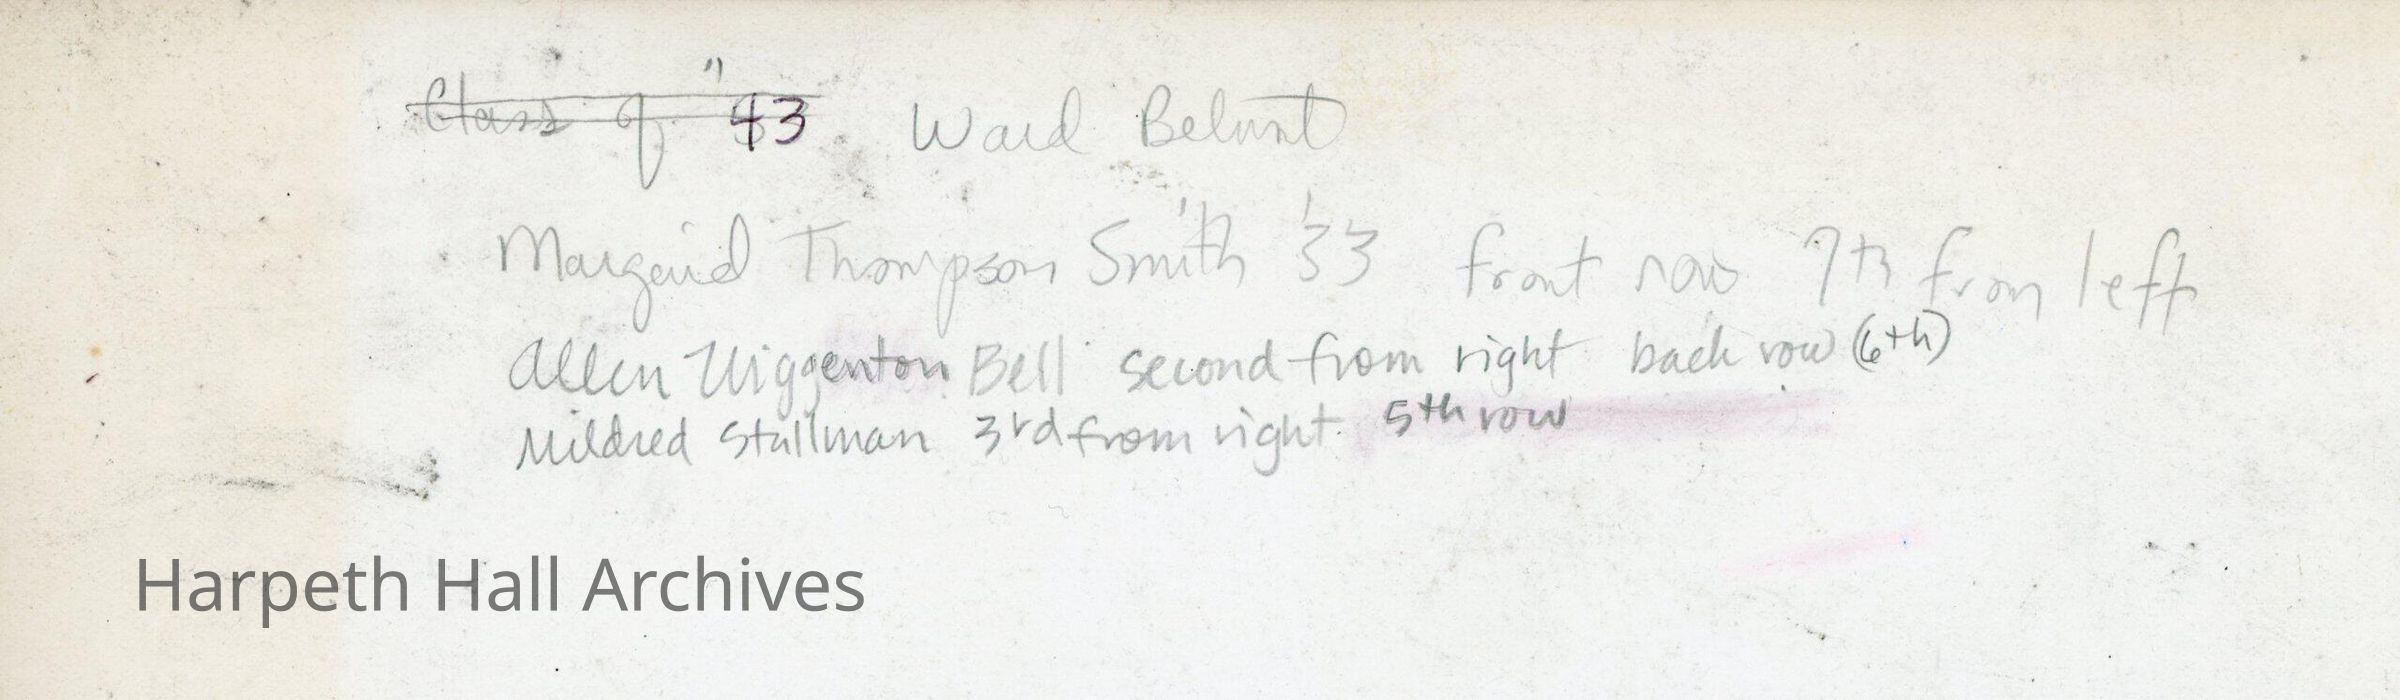 Class of "43 Ward Belmont
Margaid Thompson Smith '33 front row 7th from left
Allen Wiggenton Bell second from right back row (6th)
Mildred Stallman 3rd from right 5th row
Harpeth Hall Archives